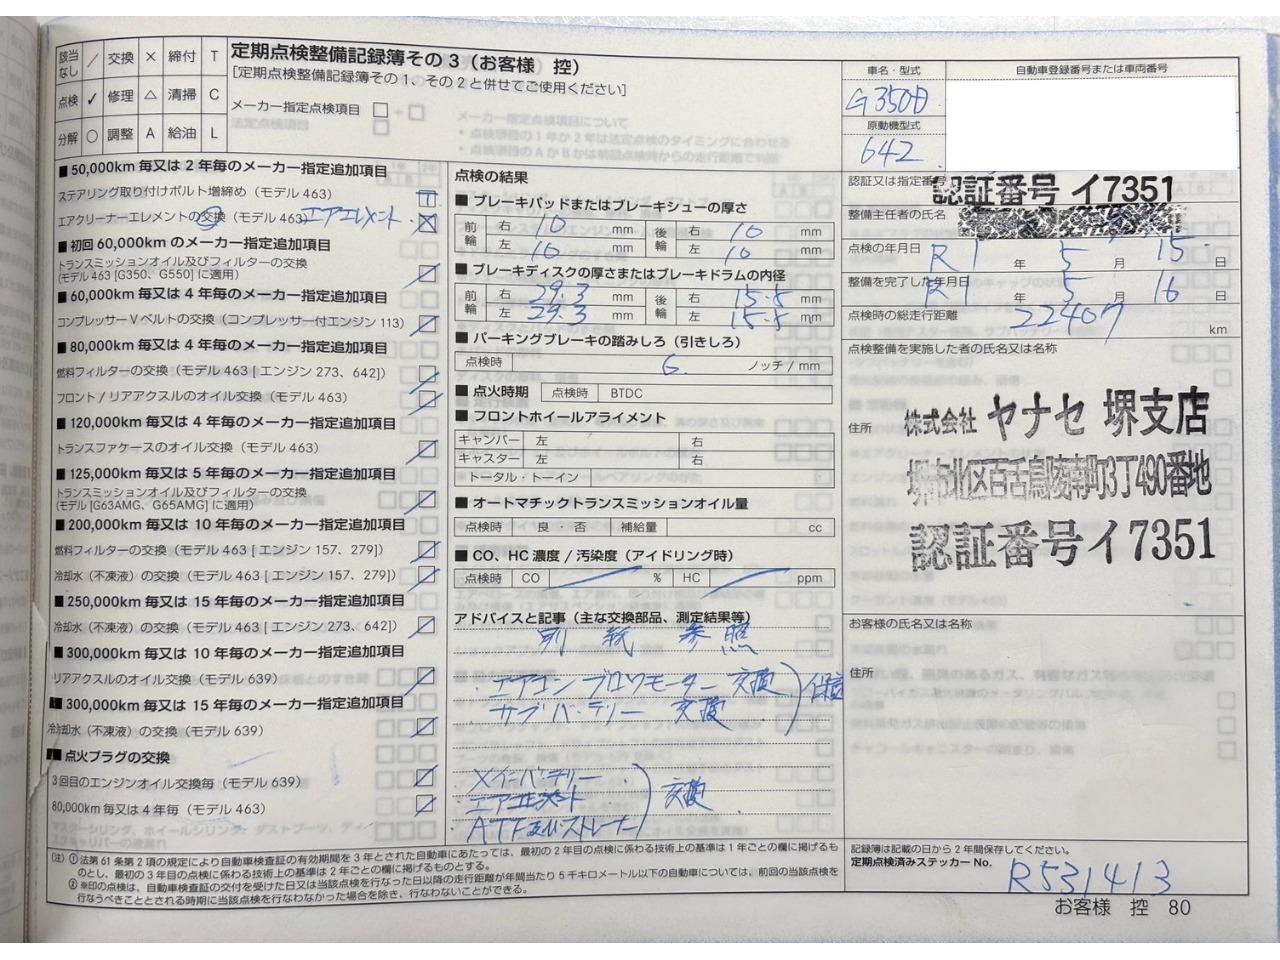 該当なし ／ 交換 × 締付 T
点検 ✓ 修理 △ 清掃 C
分解 ○ 調整 A 給油 L
定期点検整備記録簿その3（お客様 控）
[定期点検整備記録簿その1、その2と併せてご使用ください]
メーカー指定点検項目 □
■ 50,000km 毎又は2年毎のメーカー指定追加項目
ステアリング取り付けボルト増締め（モデル 463） T
エアクリーナーエレメントの交換（モデル 463） エアエレメント ×
■ 初回 60,000km のメーカー指定追加項目
トランスミッションオイル及びフィルターの交換
(モデル 463 [G350、G550] に適用)
■ 60,000km 毎又は4年毎のメーカー指定追加項目
コンプレッサーVベルトの交換（コンプレッサー付エンジン 113）
■ 80,000km 毎又は4年毎のメーカー指定追加項目
燃料フィルターの交換（モデル 463 [ エンジン 273、642]）
フロント / リアアクスルのオイル交換（モデル 463）
■ 120,000km 毎又は4年毎のメーカー指定追加項目
トランスファケースのオイル交換（モデル 463）
■ 125,000km 毎又は5年毎のメーカー指定追加項目
トランスミッションオイル及びフィルターの交換
(モデル [G63AMG、G65AMG] に適用)
■ 200,000km 毎又は10年毎のメーカー指定追加項目
燃料フィルターの交換（モデル 463 [ エンジン 157、279]）
冷却水（不凍液）の交換（モデル 463 [ エンジン 157、279]）
■ 250,000km 毎又は15年毎のメーカー指定追加項目
冷却水（不凍液）の交換（モデル 463 [ エンジン 273、642]）
■ 300,000km 毎又は10年毎のメーカー指定追加項目
リアアクスルのオイル交換（モデル 639）
■ 300,000km 毎又は15年毎のメーカー指定追加項目
冷却水（不凍液）の交換（モデル 639）
■ 点火プラグの交換
3回目のエンジンオイル交換毎（モデル 639）
80,000km 毎又は4年毎（モデル 463）
点検の結果
■ ブレーキパッドまたはブレーキシューの厚さ
前輪 右 10 mm 後輪 右 10 mm
左 10 mm 左 10 mm
■ ブレーキディスクの厚さまたはブレーキドラムの内径
前輪 右 29.3 mm 後輪 右 15.5 mm
左 29.3 mm 左 15.5 mm
■ パーキングブレーキの踏みしろ（引きしろ）
点検時 6 ノッチ / mm
■ 点火時期 点検時 BTDC
■ フロントホイールアライメント
キャンバー 左 右
キャスター 左 右
トータル・トーイン
■ オートマチックトランスミッションオイル量
点検時 良・否 補給量 cc
■ CO、HC 濃度 / 汚染度（アイドリング時）
点検時 CO % HC ppm
アドバイスと記事（主な交換部品、測定結果等）
別紙参照
エアコンブロワモーター 交換
サブバッテリー 交換
メインバッテリー
エアエレメント 交換
ATF及びストレーナー
車名・型式
G350D
原動機型式
642
自動車登録番号または車両番号
認証又は指定番号 認証番号 イ7351
整備主任者の氏名
点検の年月日 R1 年 5 月 15 日
整備を完了した年月日 R1 年 5 月 16 日
点検時の総走行距離 22407 km
点検整備を実施した者の氏名又は名称
住所 株式会社 ヤナセ 堺支店
堺市北区百舌鳥陵南町3丁490番地
認証番号イ7351
お客様の氏名又は名称
住所
(注) ① 法第 61 条第 2 項の規定により自動車検査証の有効期間を 3 年とされた自動車にあたっては、最初の 2 年目の点検に係わる技術上の基準は 1 年ごとの欄に掲げるものとし、最初の 3 年目の点検に係わる技術上の基準は 2 年ごとの欄に掲げるものとする。
② ※印の点検は、自動車検査証の交付を受けた日又は当該点検を行なった日以降の走行距離が年間当たり 5 千キロメートル以下の自動車については、前回の当該点検を行なうべきこととされる時期に当該点検を行なわなかった場合を除き、行なわないことができる。
記録簿は記載の日から 2 年間保存してください。
定期点検済みステッカー No. R531413
お客様 控 80